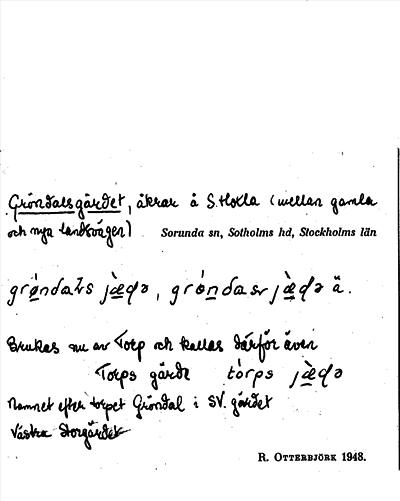 Gröndalsgärdet, åkrar å S. Holla (mellan gamla
och nya landsvägen) Sorunda sn, Sotholms hd, Stockholms län
Brukas nu av Torp och kallas därför även
Torps gärde tòrps jæ̀ḍə
Namnet efter torpet Gröndal i SV. gärdet
Västra Storgärdet
R. OTTERBJÖRK 1948.